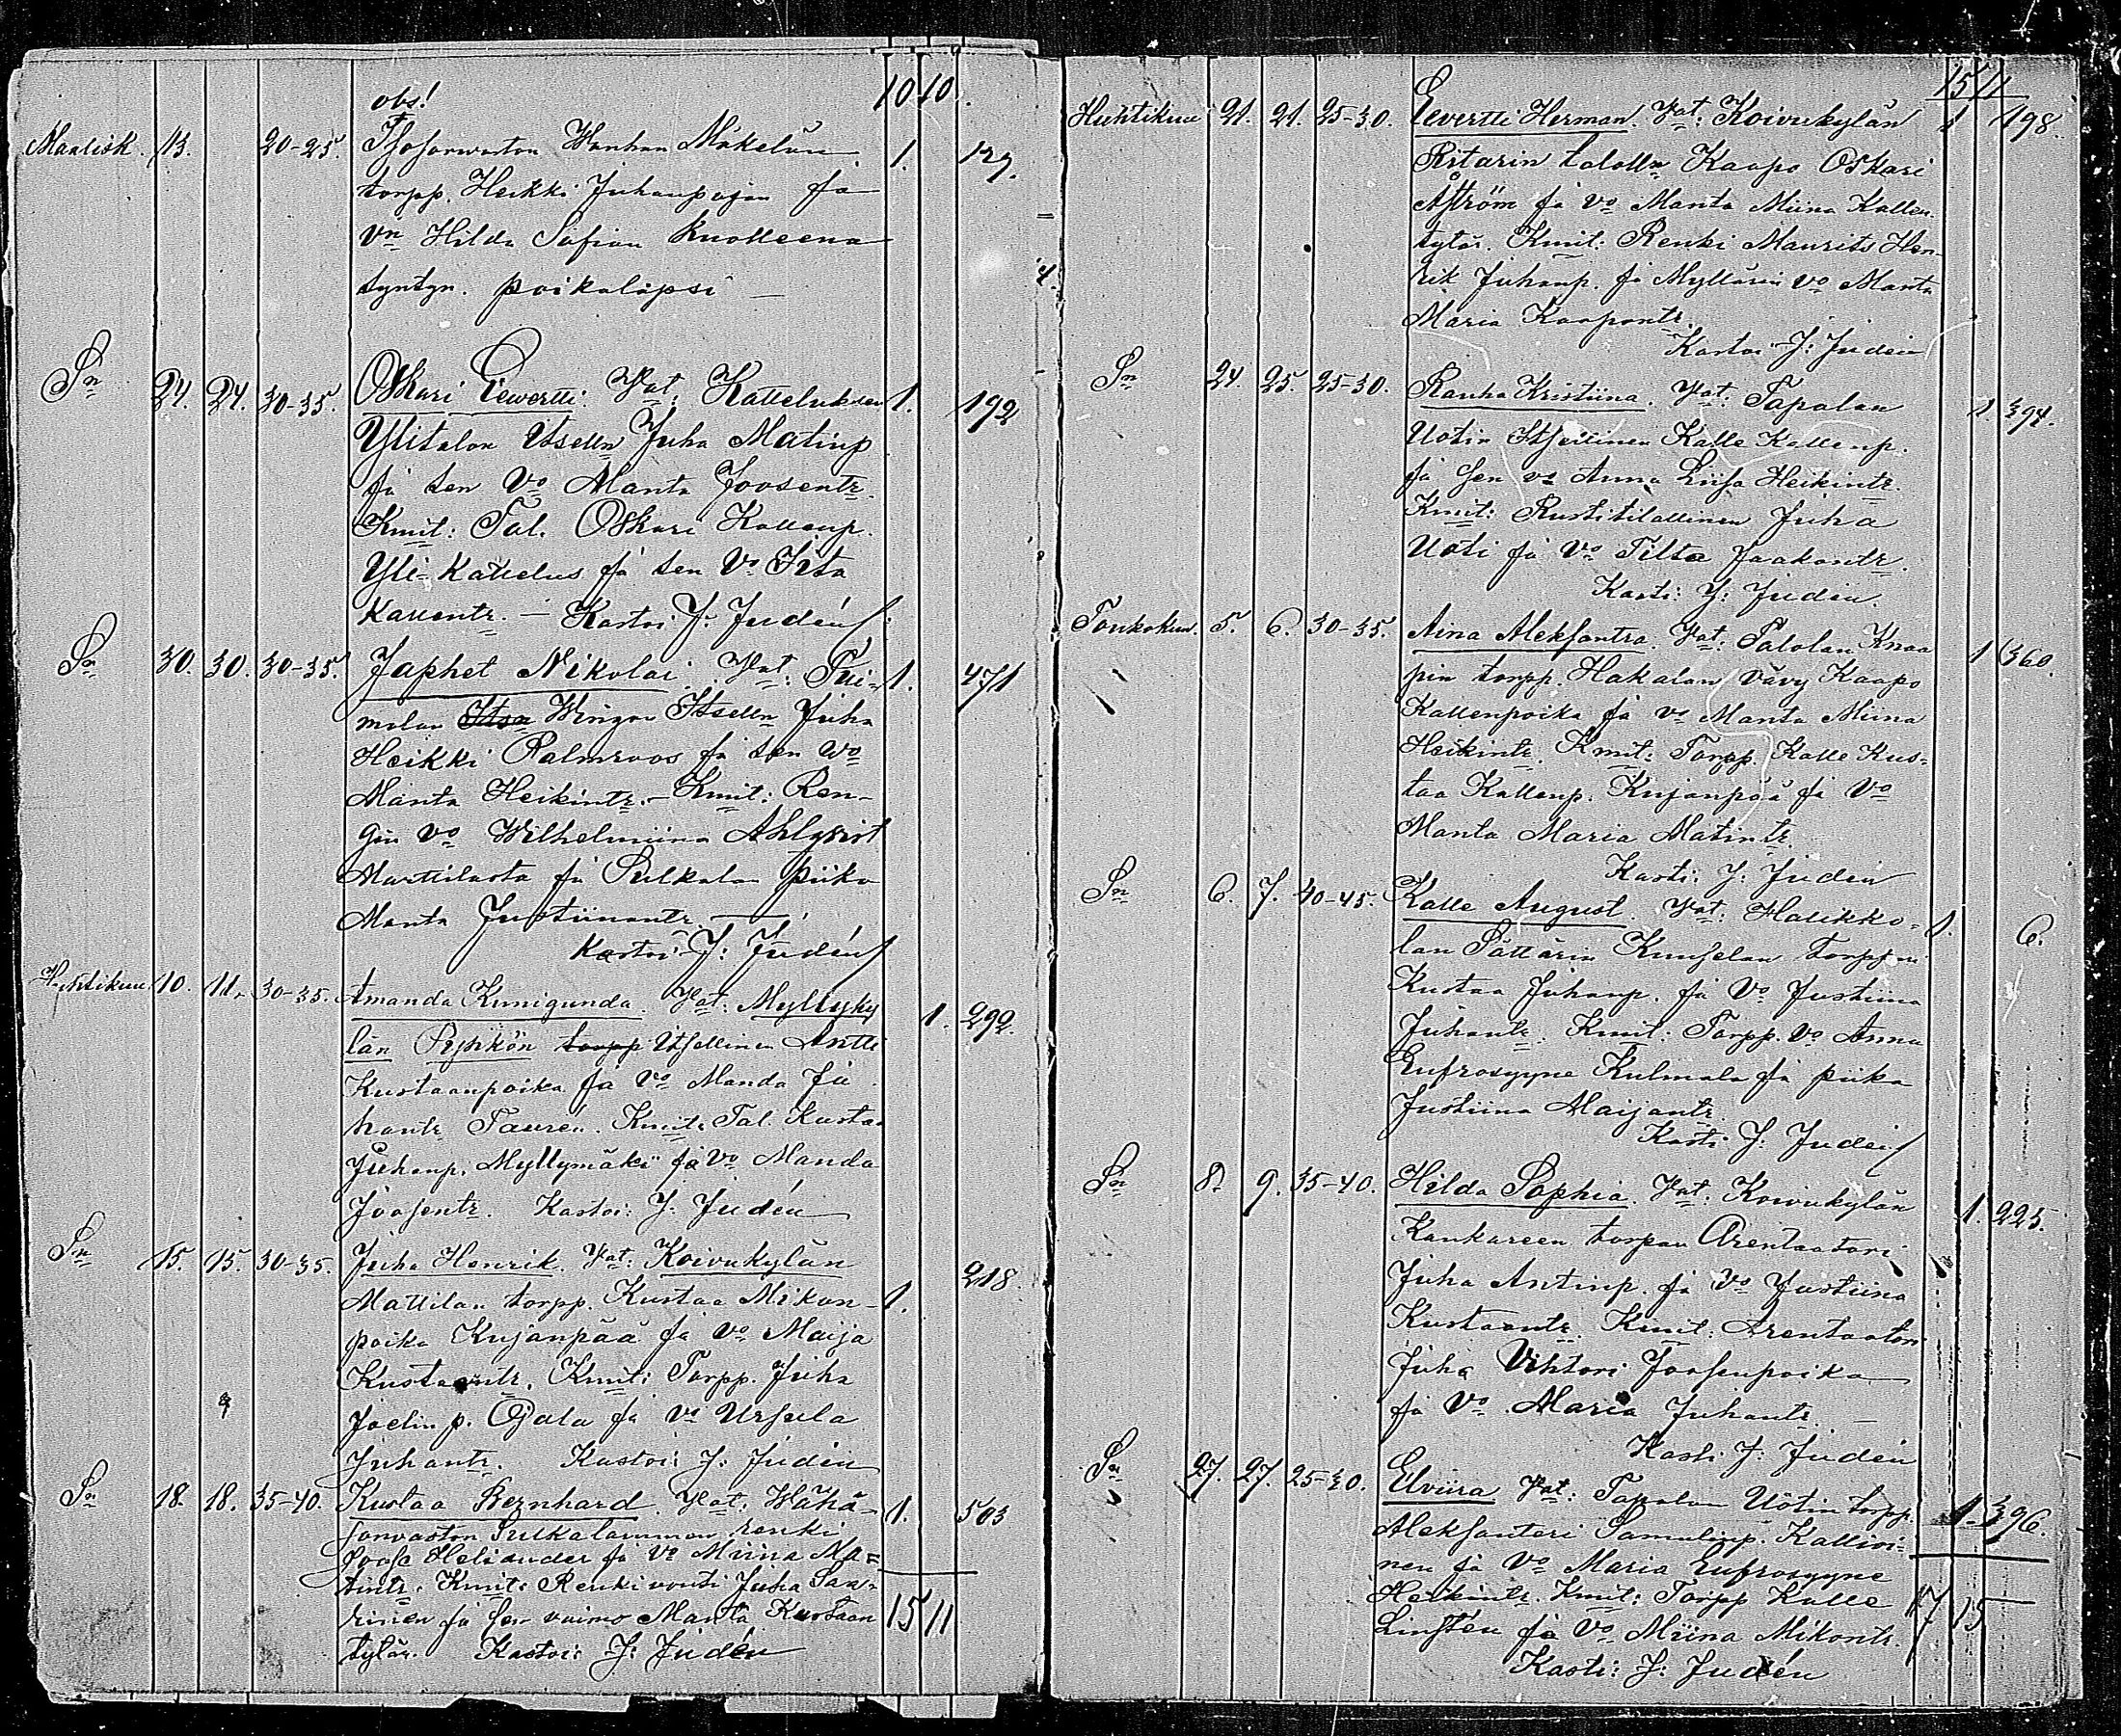 obs! 10 10
Maalisk. 13. 20-25. Isosorwaston Wanhan Mäkelän 1. 127.
torpp. Heikki Juhanpojan ja
Vn Hilda Sofian kuolleena
syntyn. poikalapsi —
Sn 24. 24. 30-35. Oskari Eewertti. Vat: Katteluksen 1. 192
Ylitalon itselln Juha Matinp
ja sen Vo Manta Joosentr.
Kmit: Tal. Oskari Kallenp.
Yli-Kattelus ja sen Vo Iita
Kallentr. — Kastoi J. Judén
Sn 30. 30. 30-35. Japhet Nikolai. Vat: Tui- 1. 471
molan Itse Wingon Itselln Juha
Heikki Palmroos ja sen Wo
Manta Heikintr. — Kmit: Ren-
gin Vo Wilhelmiina Ahlqvist
Marttilasta ja Sulkalan piika
Manta Justiinantr. —
Kastoi J: Judén
Huhtikuu 10. 11. 30-35. Amanda Kunigunda. Vat: Myllyky 1. 292.
län Pypikön torpp Itsellinen Antti
Kustaanpoika ja Vo Manda Ju
hantr Taurén. Kmit: Tal. Kustaa
Juhanp. Myllymäki ja Vo Manda
Joosentr. Kastoi: J: Judén
Sn 15. 15. 30-35. Juha Henrik. Vat: Koivukylän 218.
Mattilan torpp. Kustaa Mikon- 1.
poika Kujanpää ja Vo Maija
Kustaantr. Kmit: Torpp. Juha
Joelinp. Ojala ja Vo Ursula
Juhantr. Kastoi: J: Judén
Sn 18. 18. 35-40. Kustaa Bernhard. Vat: Wähä- 1. 503
sorvaston Sulkalammen renki
Joose Heliander ja Vo Miina Ma=
tintr. Kmit: Renki vouti Juha Saa-
rinen ja sen vaimo Manta Kustaan 15 11
tytär. Kastoi: J: Judén
15 11
Huhtikuu 21. 21. 25-30. Eevertti Herman. Vat: Koivukylän 1 198.
Ritarin talolln Kaapo Oskari
Åström ja Vo Manta Miina Kallen-
tytär. Kmit: Renki Maurits Hen-
rik Juhanp. ja Myllärin Vo Manta
Maria Kaapontr.
Kastoi J: Judén
Sn 24. 25. 25-30. Rauha Kristiina. Vat: Tapolan 1 394.
Uotin Itsellinen Kalle Kallenp.
ja sen vo Anna Liisa Heikintr.
Kmit: Rustitilallinen Juha
Uoti ja Vo Tilta Jaakontr.
Kasti: J: Judén.
Toukokuu. 5. 6. 30-35. Aina Aleksantra. Vat: Talolan Knaa 1 360.
pin torpp. Hakalan vävy Kaapo
Kallenpoika ja vo Manta Miina
Heikintr. Kmit: Torpp. Kalle Kus-
taa Kallenp. Kujanpää ja Vo
Manta Maria Matintr.
Kasti: J: Judén
Sn 6. 7. 40-45. Kalle August. Vat: Halikko- 1. 6.
lan Pättärin Kunselan torppn
Kustaa Juhanp. ja Vo Justiina
Juhantr. Kmit: Torpp. Vo Anna
Eufrosyyne Kulmala ja piika
Justiina Maijantr.
Kasti J: Judén
Sn 8. 9. 35-40. Hilda Sophia. Vat: Koivukylän 1. 225.
Kankareen torpan Arentaatori
Juha Antinp. ja Vo Justiina
Kustaantr. Kmit: Arentaatori
Juha Vihtori Joosenpoika
ja Vo Maria Juhantr. —
Kasti J: Judén
Sn 27. 27. 25-30. Elviira Vat: Tapolan Uotin torpp. 1. 396.
Aleksanteri Samulinp. Kallioi-
nen ja Vo Maria Eufrosyyne
Heikintr. Kmit: Torpp Kalle 17 15
Linstén ja Vo Miina Mikontr.
Kasti: J: Judén